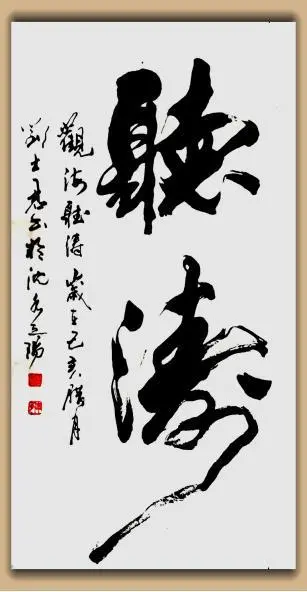 聽濤
觀海聽濤 歲在己亥臘月
劉士書於沈水之陽